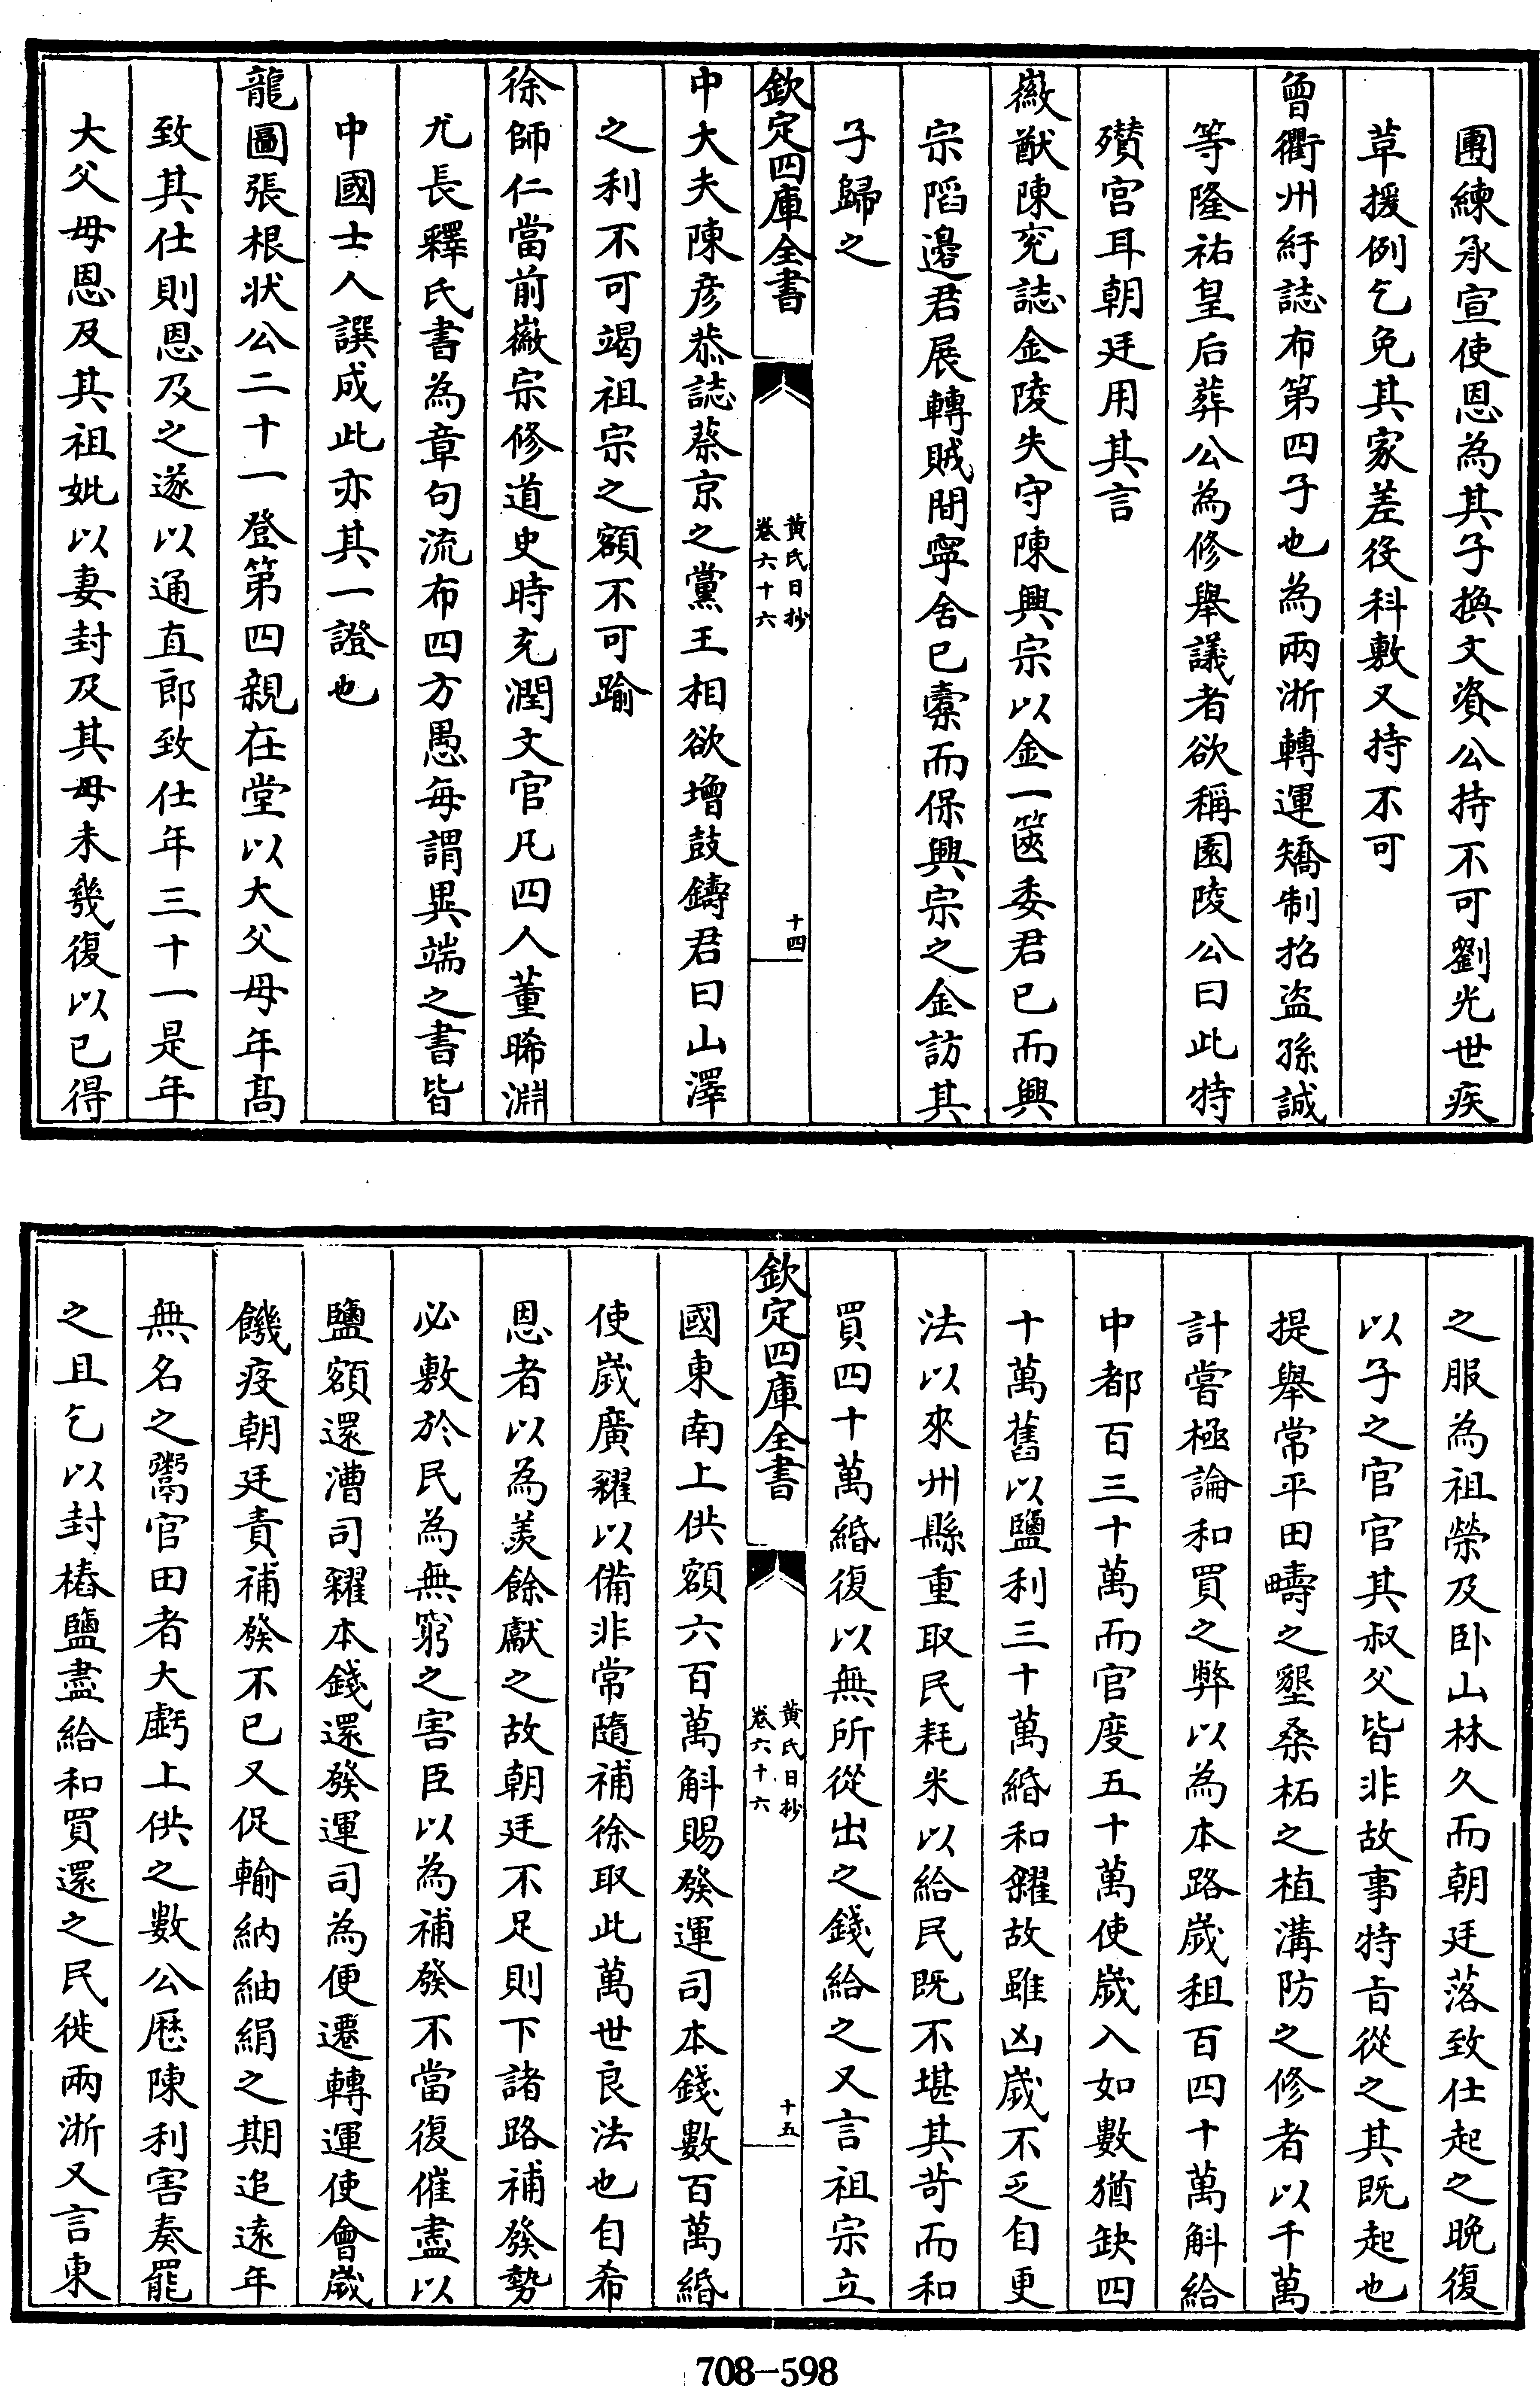 團練承宣使恩為其子換文資公持不可劉光世疾
草援例乞免其家差役科敷又持不可
曾衢州紆誌布第四子也為兩浙轉運矯制招盜孫誠
等隆祐皇后葬公為修舉議者欲稱園陵公曰此特
殯宮耳朝廷用其言
徽猷陳兖誌金陵失守陳興宗以金一篋委君已而興
宗䧟邊君展轉賊間寧舍已橐而保興宗之金訪其
子歸之
欽定四庫全書
黄氏日抄
卷六十六
十四
中大夫陳彦恭誌蔡京之黨王相欲增鼓鑄君曰山澤
之利不可竭祖宗之額不可踰
徐師仁當前徽宗修道史時充潤文官凡四人董晞淵
尤長釋氏書為章句流布四方愚每謂異端之書皆
中國士人譔成此亦其一證也
龍圖張根状公二十一登第四親在堂以大父母年髙
致其仕則恩及之遂以通直郎致仕年三十一是年
大父母恩及其祖妣以妻封及其母未幾復以已得
之服為祖榮及卧山林久而朝廷落致仕起之晚復
以子之官官其叔父皆非故事特旨從之其既起也
提舉常平田疇之墾桑柘之植溝防之修者以千萬
計嘗極論和買之弊以為本路嵗租百四十萬斛給
中都百三十萬而官度五十萬使嵗入如數猶缺四
十萬舊以鹽利三十萬緡和糴故雖凶嵗不乏自更
法以來州縣重取民耗米以給民既不堪其苛而和
買四十萬緡復以無所從出之錢給之又言祖宗立
欽定四庫全書
黄氏日抄
卷六十六
十五
國東南上供額六百萬斛賜發運司本錢數百萬緡
使嵗廣糴以備非常隨補徐取此萬世良法也自希
恩者以為羡餘獻之故朝廷不足則下諸路補發勢
必敷於民為無窮之害臣以為補發不當復催盡以
鹽額還漕司糴本錢還發運司為便遷轉運使會嵗
饑疫朝廷責補發不已又促輸納紬絹之期追逺年
無名之鬻官田者大虧上供之數公厯陳利害奏罷
之且乞以封樁鹽盡給和買還之民徙兩浙又言東
708-598